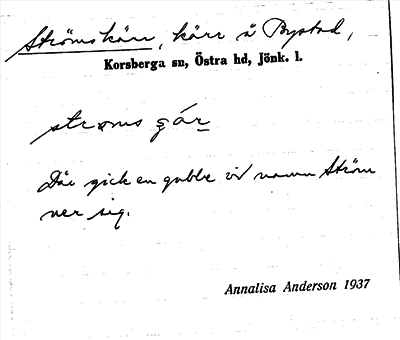 Strömskärr, kärr å Bystad,
Korsberga sn, Östra hd, Jönk. l.
stroms čár
Där gick en gubbe vid namn Ström
ner sig.
Annalisa Anderson 1937